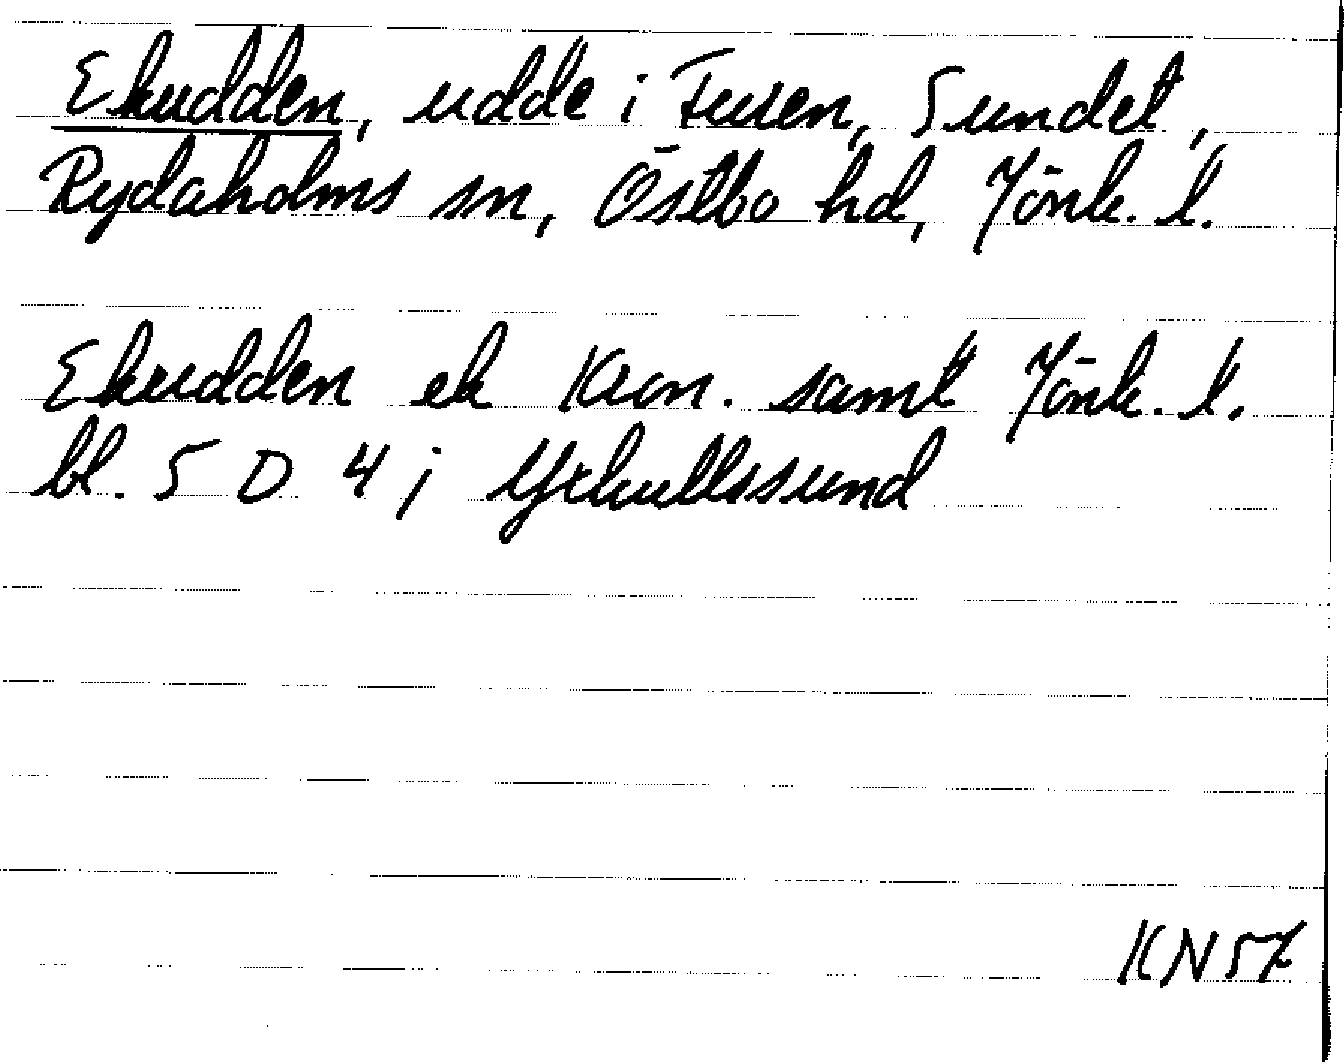 Ekudden, udde i Furen, Sundet,
Rydaholms sn, Östbo hd, Jönk. l.
Ekudden ek Kron. samt Jönk. l.
bl. 5 D 4 ; Yxkullssund
KN57